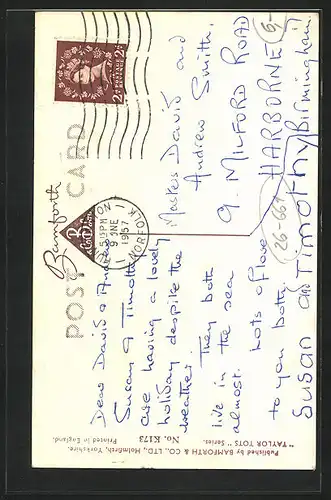 POST CARD
Bamforth
POSTAGE
REVENUE
2½D
5.15 PM
9 JNE
1957
NORFOLK
Dear David & Andrew
Susan & Timothy
are having a lovely
holiday despite the
weather. They both
live in the sea
almost. Lots of love
to you both
Susan and TIMOTHY
Masters David and
Andrew Smith.
9 MILFORD ROAD
HARBORNE
Birmingham
26-661
5,-
"TAYLOR TOTS" Series.
No. K173
Published by BAMFORTH & CO., LTD., Holmfirth, Yorkshire.
Printed in England.